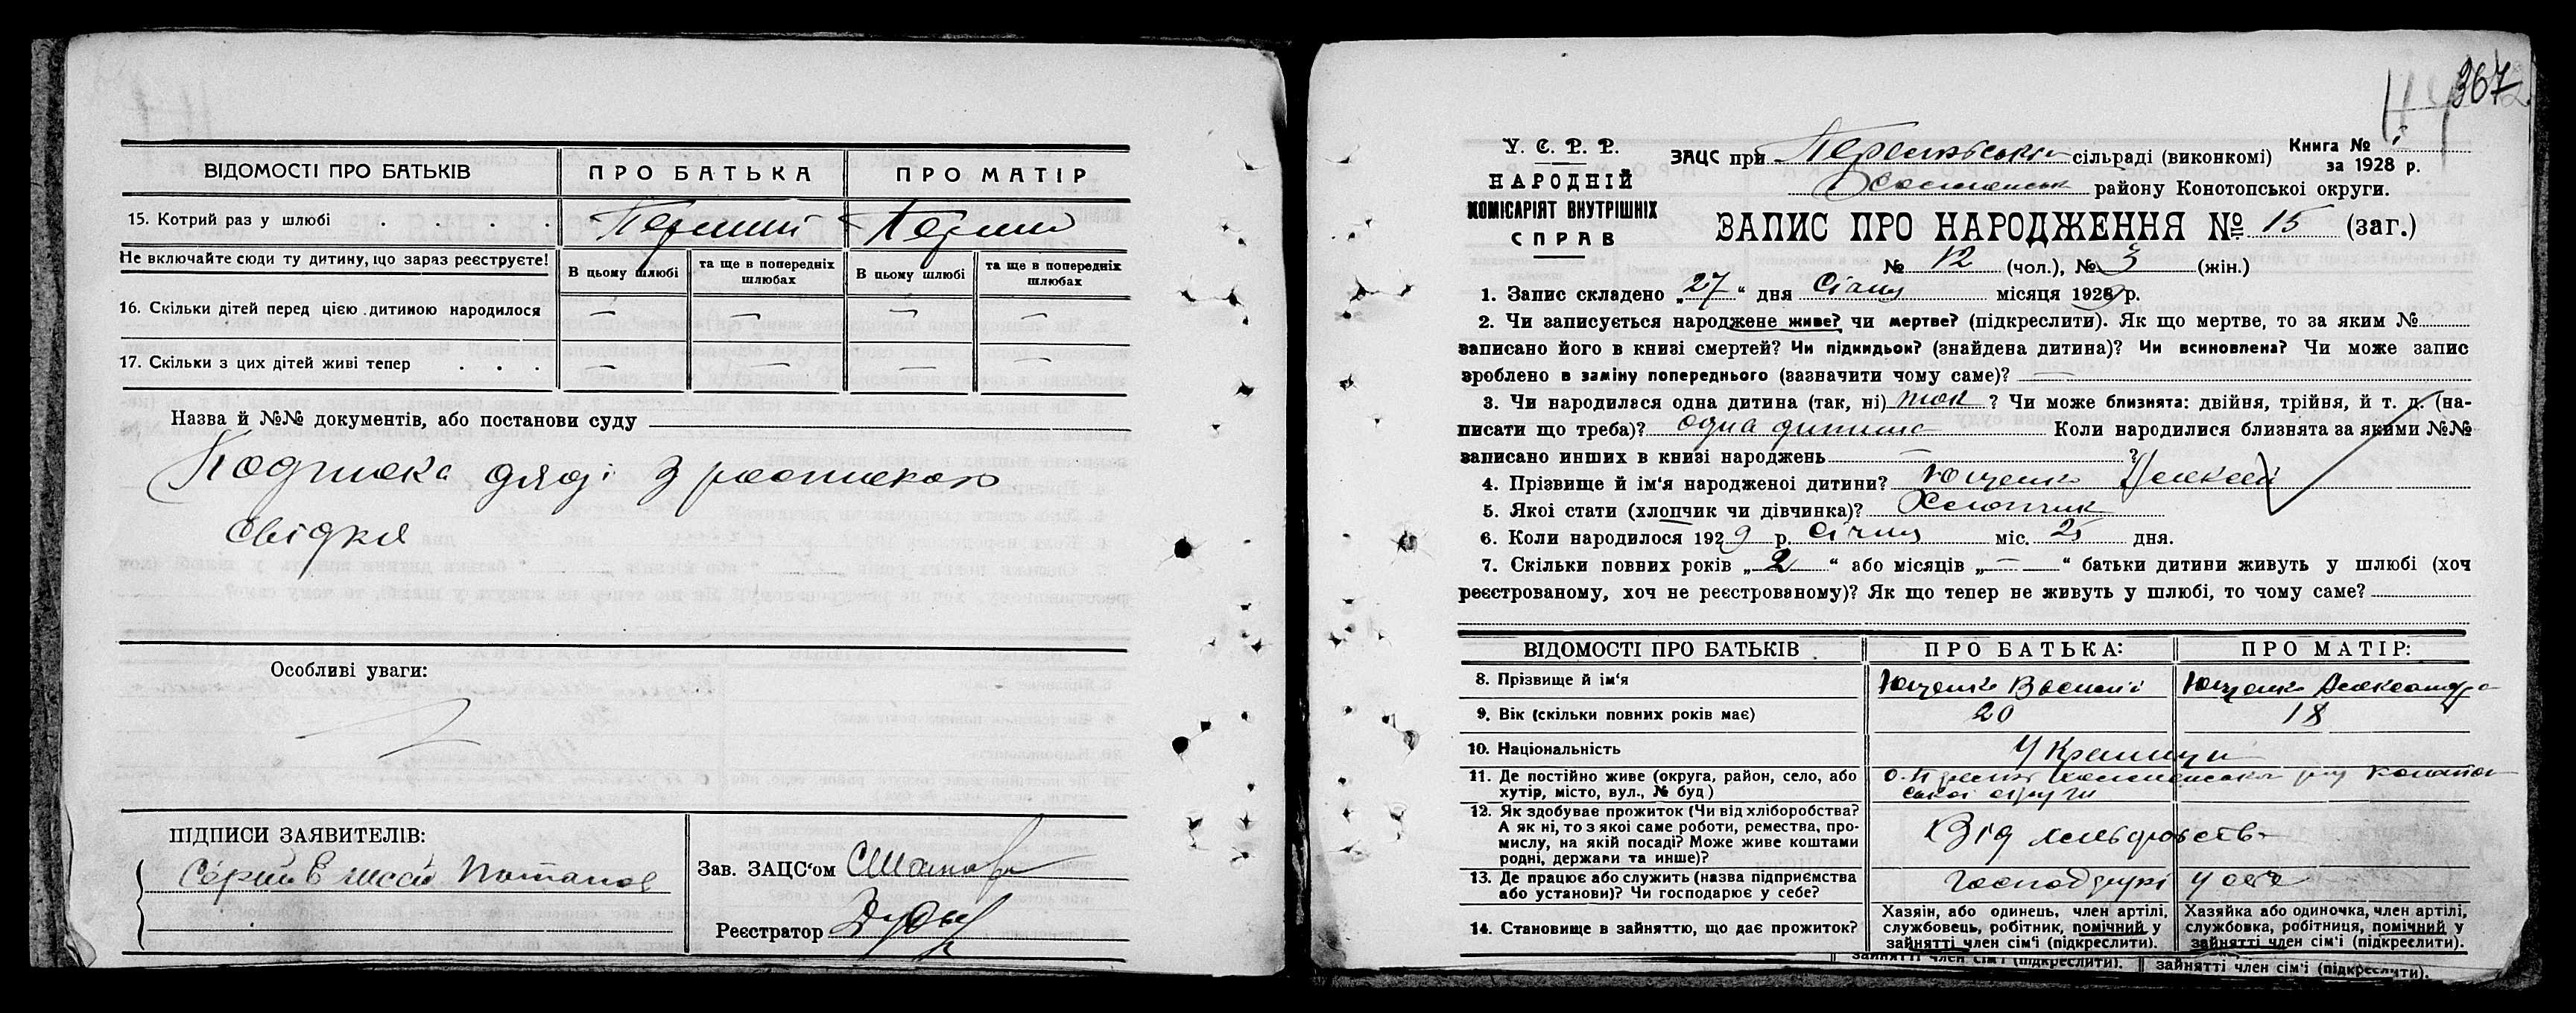 ВІДОМОСТІ ПРО БАТЬКІВ
ПРО БАТЬКА
ПРО МАТІР
15. Котрий раз у шлюбі . . . .
Перший
Перший
Не включайте сюди ту дитину, що зараз реєструєте!
В цьому шлюбі
та ще в попередніх шлюбах
В цьому шлюбі
та ще в попередніх шлюбах
16. Скільки дітей перед цією дитиною народилося
— — — —
17. Скільки з цих дітей живі тепер . . .
— — — —
Назва й №№ документів, або постанови суду
Подписка дяді з
свідкя
Особливі уваги:
ПІДПИСИ ЗАЯВИТЕЛІВ:
Потапов
Зав. ЗАЦС'ом
Реєстратор
367
У. С. Р. Р.
НАРОДНІЙ
КОМІСАРІЯТ ВНУТРІШНІХ
СПРАВ
ЗАЦС при сільраді (виконкомі)
Книга №
за 1928 р.
району Конотопської округи.
ЗАПИС ПРО НАРОДЖЕННЯ № 15 (заг.)
№ 12 (чол.), № 3 (жін.)
1. Запис складено „27“ дня Січня місяця 1929 р.
2. Чи записується народжене живе? чи мертве? (підкреслити). Як що мертве, то за яким №
записано його в книзі смертей? Чи підкидьок? (знайдена дитина)? Чи всиновлена? Чи може запис
зроблено в заміну попереднього (зазначити чому саме)? —
3. Чи народилася одна дитина (так, ні) так ? Чи може близнята: двійня, трійня, й т. д. (на-
писати що треба)? одна дитина Коли народилися близнята за якими №№
записано инших в книзі народжень — ?
4. Прізвище й ім'я народженої дитини? Ющенко Алексей
5. Якої стати (хлопчик чи дівчинка)? Хлопчик
6. Коли народилося 1929 р. Січня міс. 25 дня.
7. Скільки повних років „2“ або місяців „—“ батьки дитини живуть у шлюбі (хоч
реєстрованому, хоч не реєстрованому)? Як що тепер не живуть у шлюбі, то чому саме?
ВІДОМОСТІ ПРО БАТЬКІВ
ПРО БАТЬКА:
ПРО МАТІР:
8. Прізвище й ім'я
Ющенко Василий
Ющенко Александра
9. Вік (скільки повних років має)
20
18
10. Національність
Украинци
11. Де постійно живе (округа, район, село, або
хутір, місто, вул., № буд.)
округи
12. Як здобуває прожиток (Чи від хліборобства?
А як ні, то з якої саме роботи, ремества, про-
мислу, на якій посаді? Може живе коштами
родні, держави та инше)?
Від
13. Де працює або служить (назва підприємства
або установи)? Чи господарює у себе?
у себе
14. Становище в зайняттю, що дає прожиток?
Хазяін, або одинець, член артілі,
службовець, робітник, помічний у
зайнятті член сім'і (підкреслити).
Хазяйка або одиночка, член артілі,
службовка, робітниця, помічний у
зайнятті член сім'і (підкреслити).
зайнятті член сім'і (підкреслити).
зайнятті член сім'і (підкреслити).